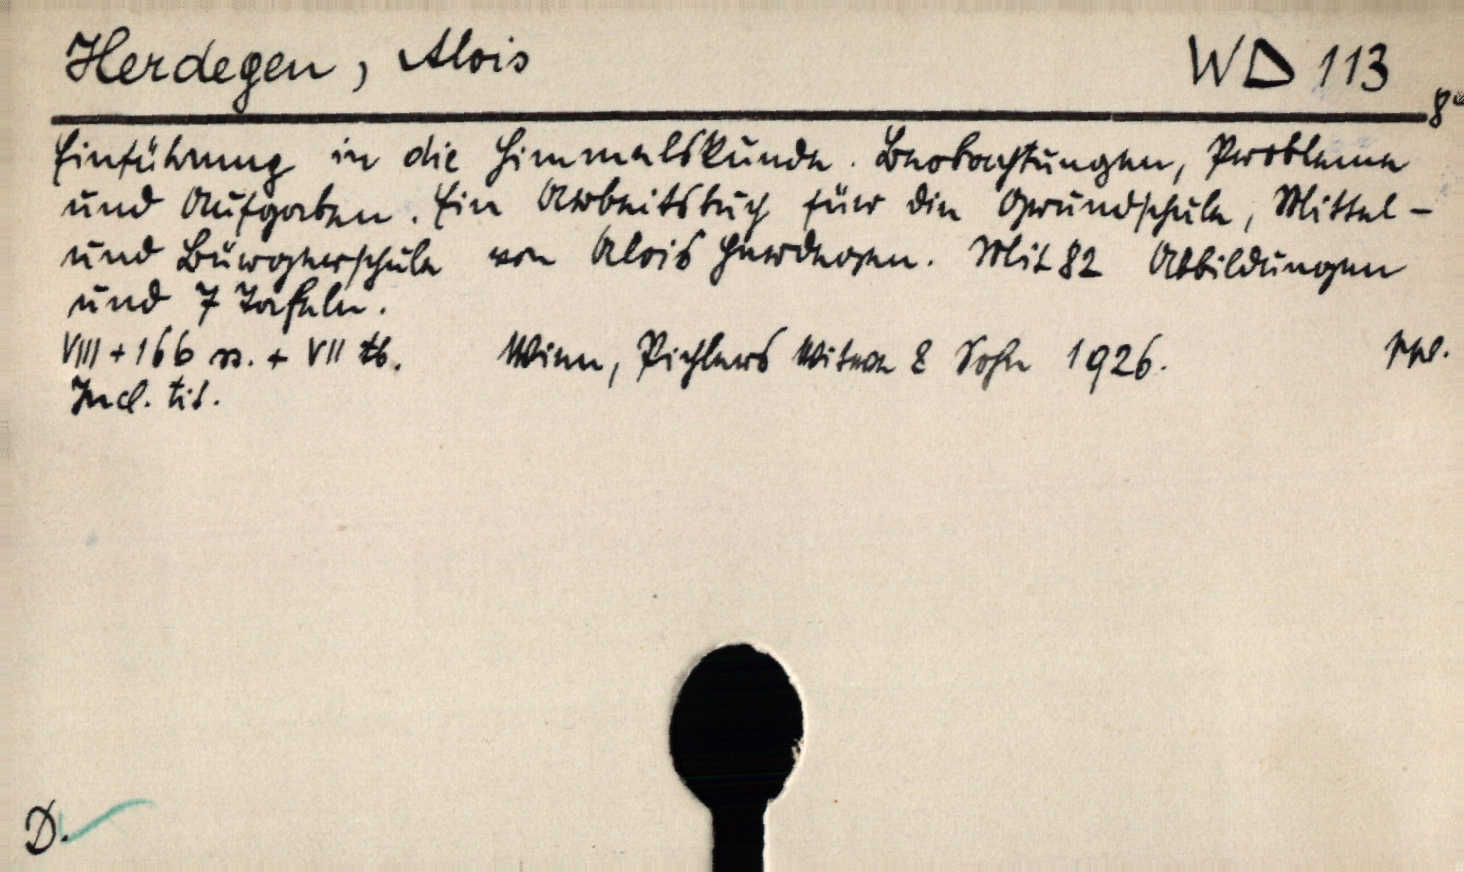 Herdegen, Alois WD 113
8°
Einführung in die Himmelskunde. Beobachtungen, Probleme
und Aufgaben. Ein Arbeitsbuch für die Grundschule, Mittel-
und Bürgerschule von Alois Herdegen. Mit 82 Abbildungen
und 7 Tafeln.
VIII + 166 ss. + VII tb. Wien, Pichlers Witwe & Sohn 1926. ppl.
Incl. tit.
D.